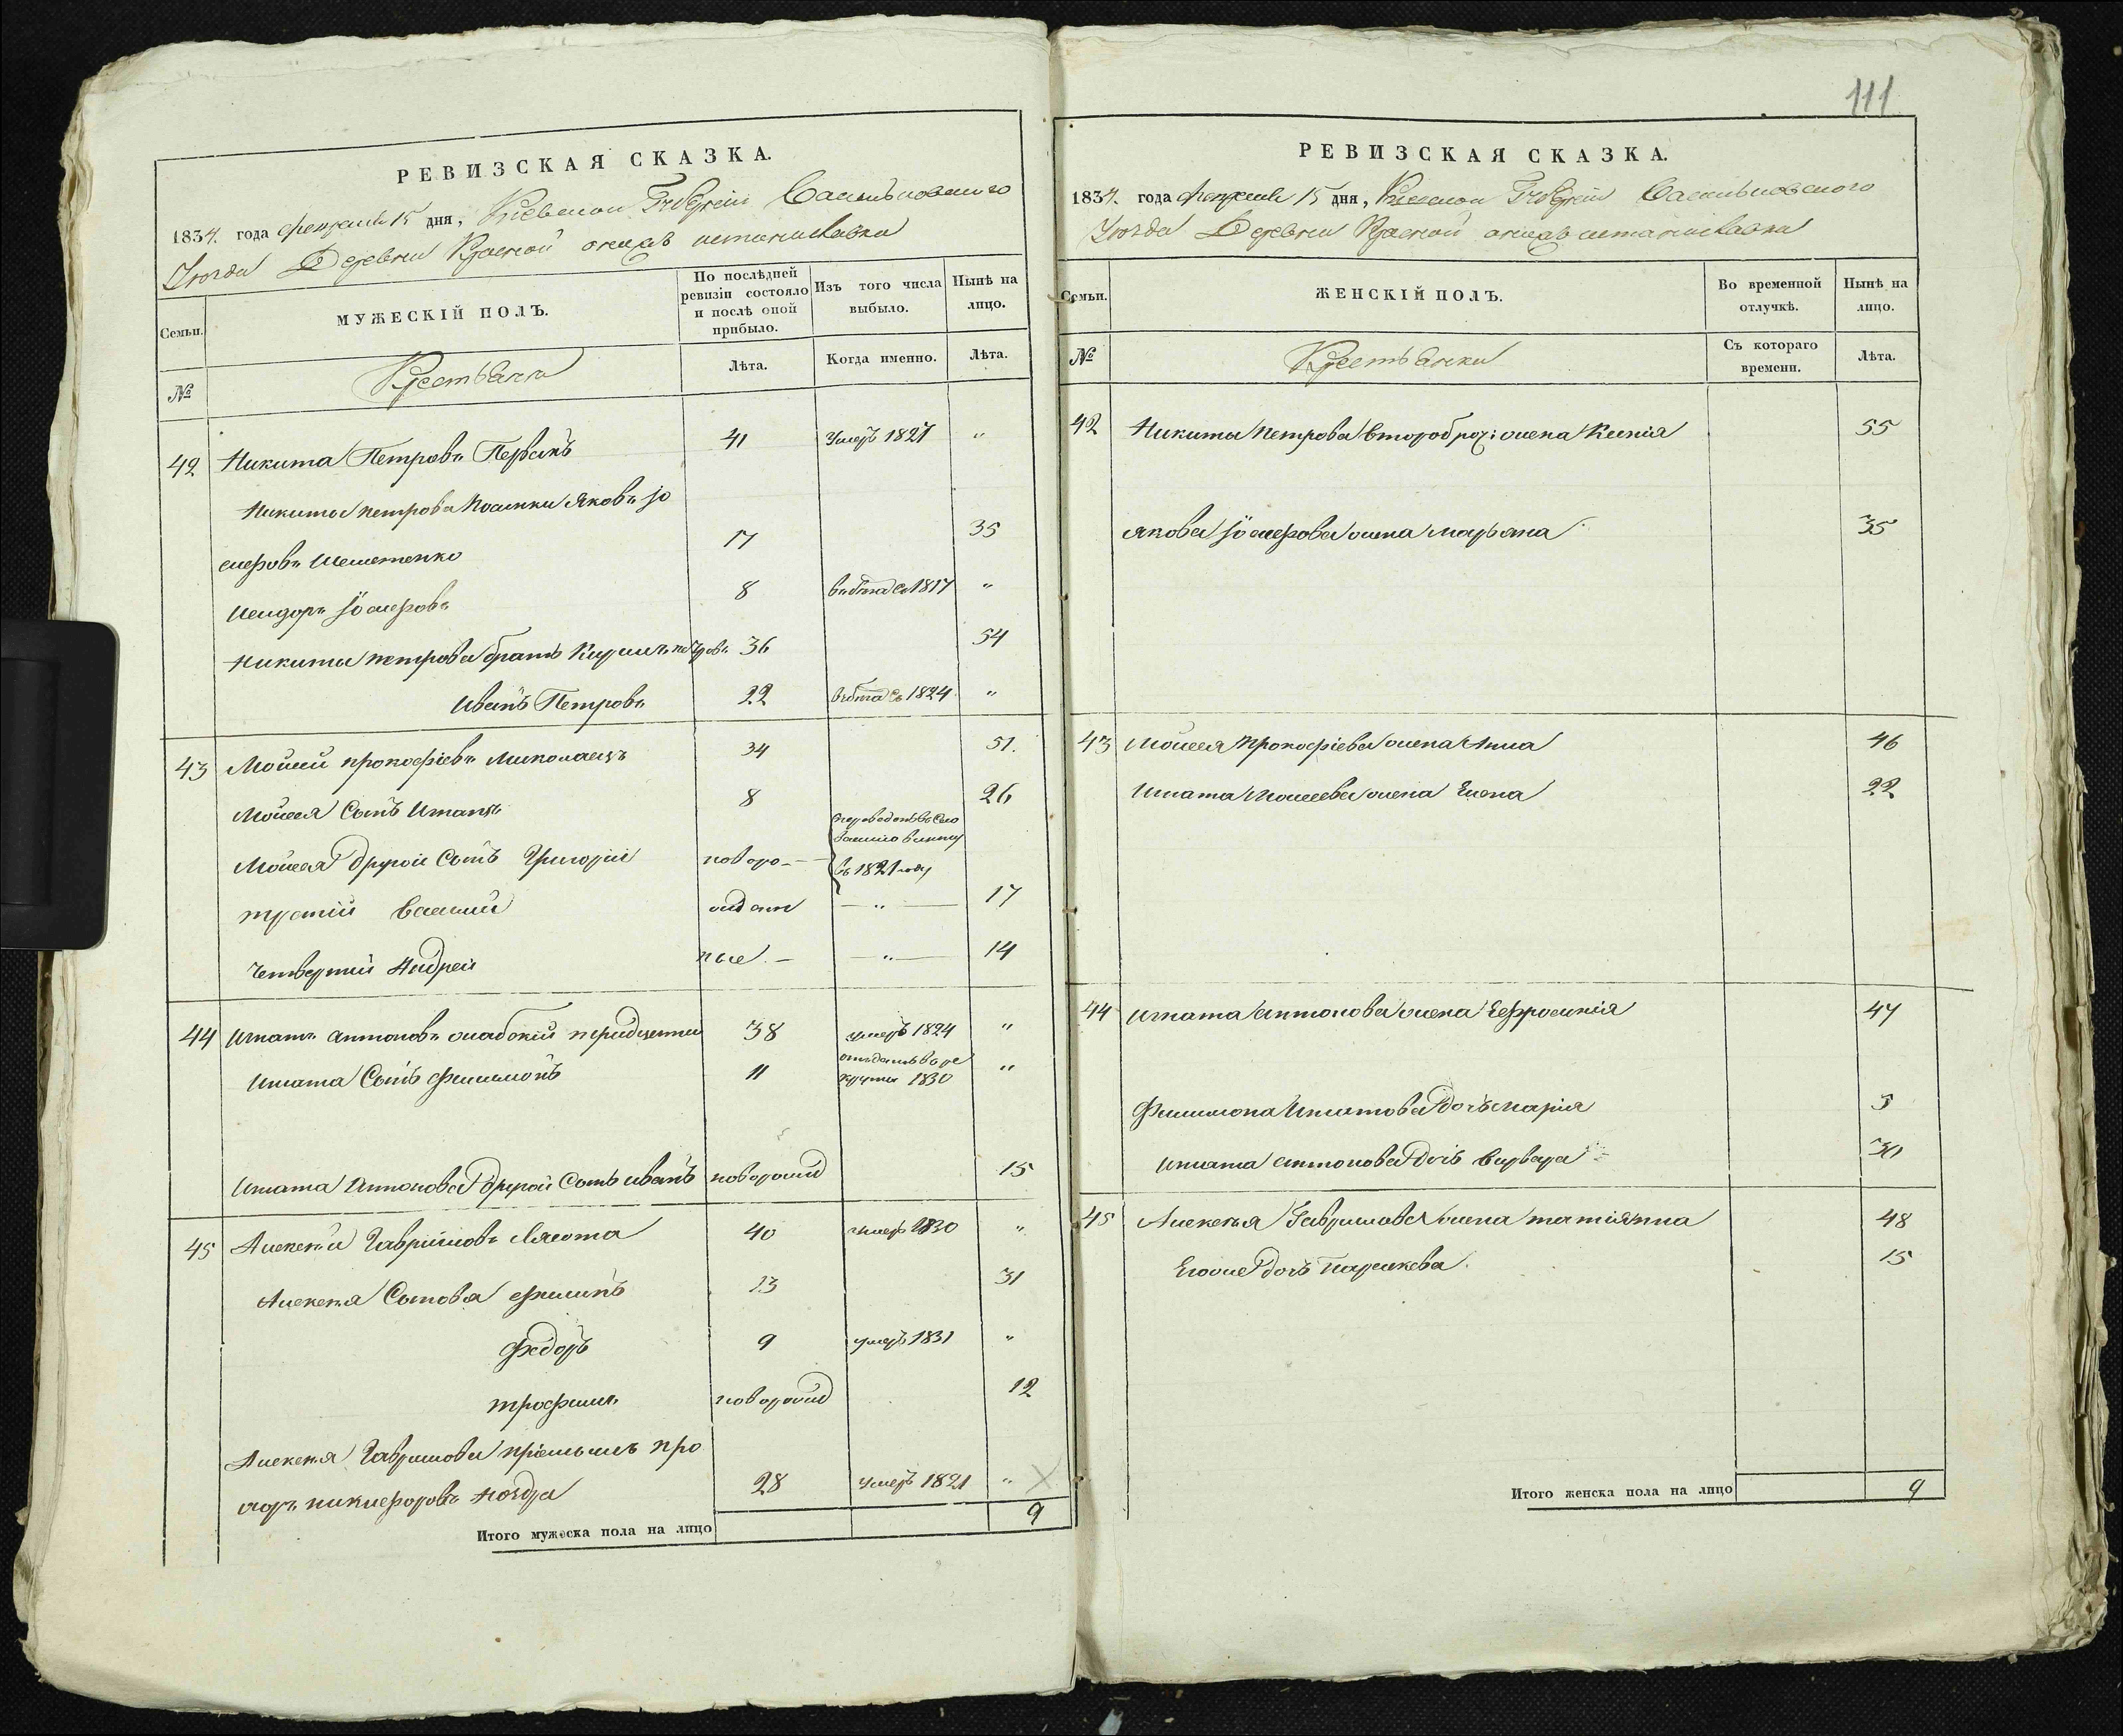 111
РЕВИЗСКАЯ СКАЗКА.
1834. года февраля 15 дня, Кіевской Губерніи Васильковского
Уезда Деревни Красной
Семьи.
МУЖЕСКІЙ ПОЛЪ.
По послѣдней ревизіи состояло и послѣ оной прибыло.
Изъ того числа выбыло.
Нынѣ на лицо.
№
Крестьяни
Лѣта.
Когда именно.
Лѣта.
42 Никита Петровъ Первакъ 41 умеръ 1827 "
Никиты петрова Яковъ іо
сифовъ 17 35
іосифовъ 8 1817 "
Никиты петрова братъ Кирилъ петровъ 36 54
Иванъ Петровъ 22 1824 "
43 Мойсей прокофіевъ Миколаецъ 34 51.
Мойсея Сынъ Игнатъ 8 26
Мойсея другой Сынъ Григорій новоро- въ 1821 году
третій Василій ожденн — " — 17
Четвертий Андрей ные — " — 14
44 Игнатъ антоновъ 38 умеръ 1824 "
Игната Сынъ филимонъ 11 отъданъ въ ре
круты 1830 "
Игната Антонова другой Сынъ иванъ новорожд 15
45 Алексѣй Гавриловъ Лясота 40 умеръ 1830 "
Алексѣя Сыновья филипъ 13 31
Федоръ 9 умеръ 1831 "
трофимъ новорожд 12
Алексѣя Гаврилова пріемышъ про
хоръ никифоровъ 28 умеръ 1821 "
Итого мужеска пола на лицо 9
РЕВИЗСКАЯ СКАЗКА.
1834. года февраля 15 дня, Кіевской Губерніи Васильковского
Уезда Деревни Красной
Семьи.
ЖЕНСКІЙ ПОЛЪ.
Во временной отлучкѣ.
Нынѣ на лицо.
№
Крестьянки
Съ котораго времени.
Лѣта.
42 Никиты петрова второброч: жена Ксенія 55
Якова іосифова жена марьяна 35
43 Мойсея прокофіева жена Анна 46
Игната Мойсеева жена Елена 22
44 Игната антонова жена Ефросинія 47
Филимона Игнатова дочь марія 3
Игната антонова дочь варвара 30
45 Алексѣя Гаврилова жена татіянна 48
Егоже дочь параскева 15
Итого женска пола на лицо 9